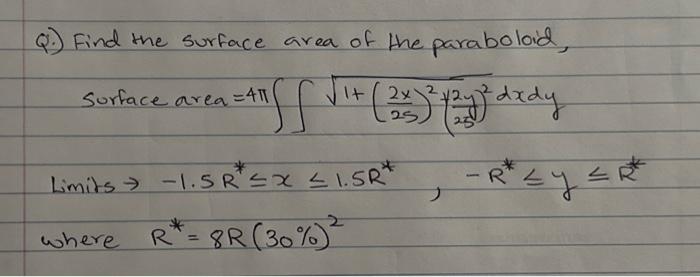 Q.) Find the surface area of the paraboloid,
surface area = 4π ∫∫ √(1 + (2x/25)² + (2y/25)²) dxdy
Limits → -1.5R* ≤ x ≤ 1.5R* , -R* ≤ y ≤ R*
where R* = 8R(30%)²